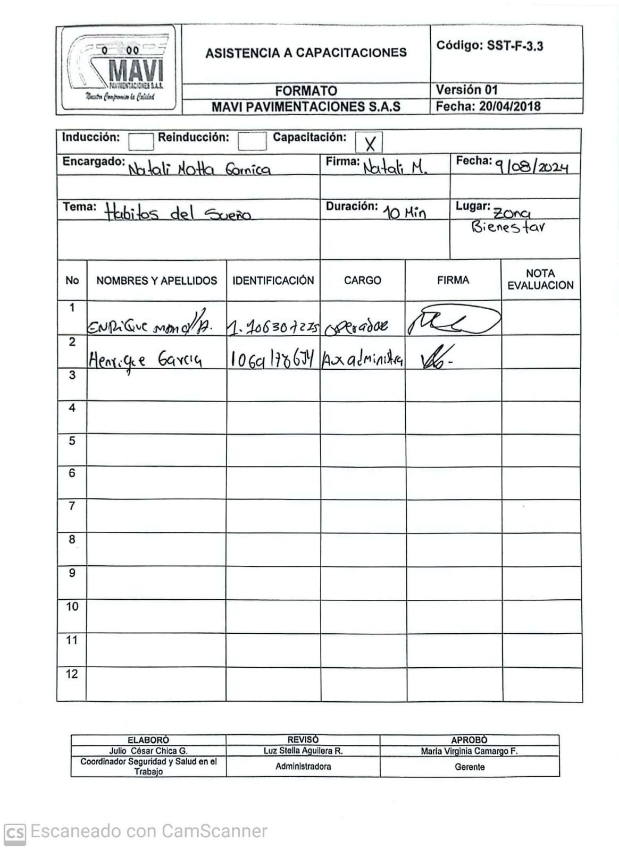 MAVI
PAVIMENTACIONES S.A.S.
Nuestro Compromiso la Calidad
ASISTENCIA A CAPACITACIONES
Código: SST-F-3.3
FORMATO
Versión 01
MAVI PAVIMENTACIONES S.A.S
Fecha: 20/04/2018
Inducción: Reinducción: Capacitación: X
Encargado: Natali Motta Garnica Firma: Natali M. Fecha: 9/08/2024
Tema: Habitos del Sueño Duración: 10 Min Lugar: Zona
Bienestar
No NOMBRES Y APELLIDOS IDENTIFICACIÓN CARGO FIRMA NOTA EVALUACION
1 ENRIQUE 1.106307225 operador
2 Henrique Garcia Aux administra
3
4
5
6
7
8
9
10
11
12
ELABORÓ REVISÓ APROBÓ
Julio César Chica G. Luz Stella Aguilera R. Maria Virginia Camargo F.
Coordinador Seguridad y Salud en el Trabajo Administradora Gerente
CS Escaneado con CamScanner